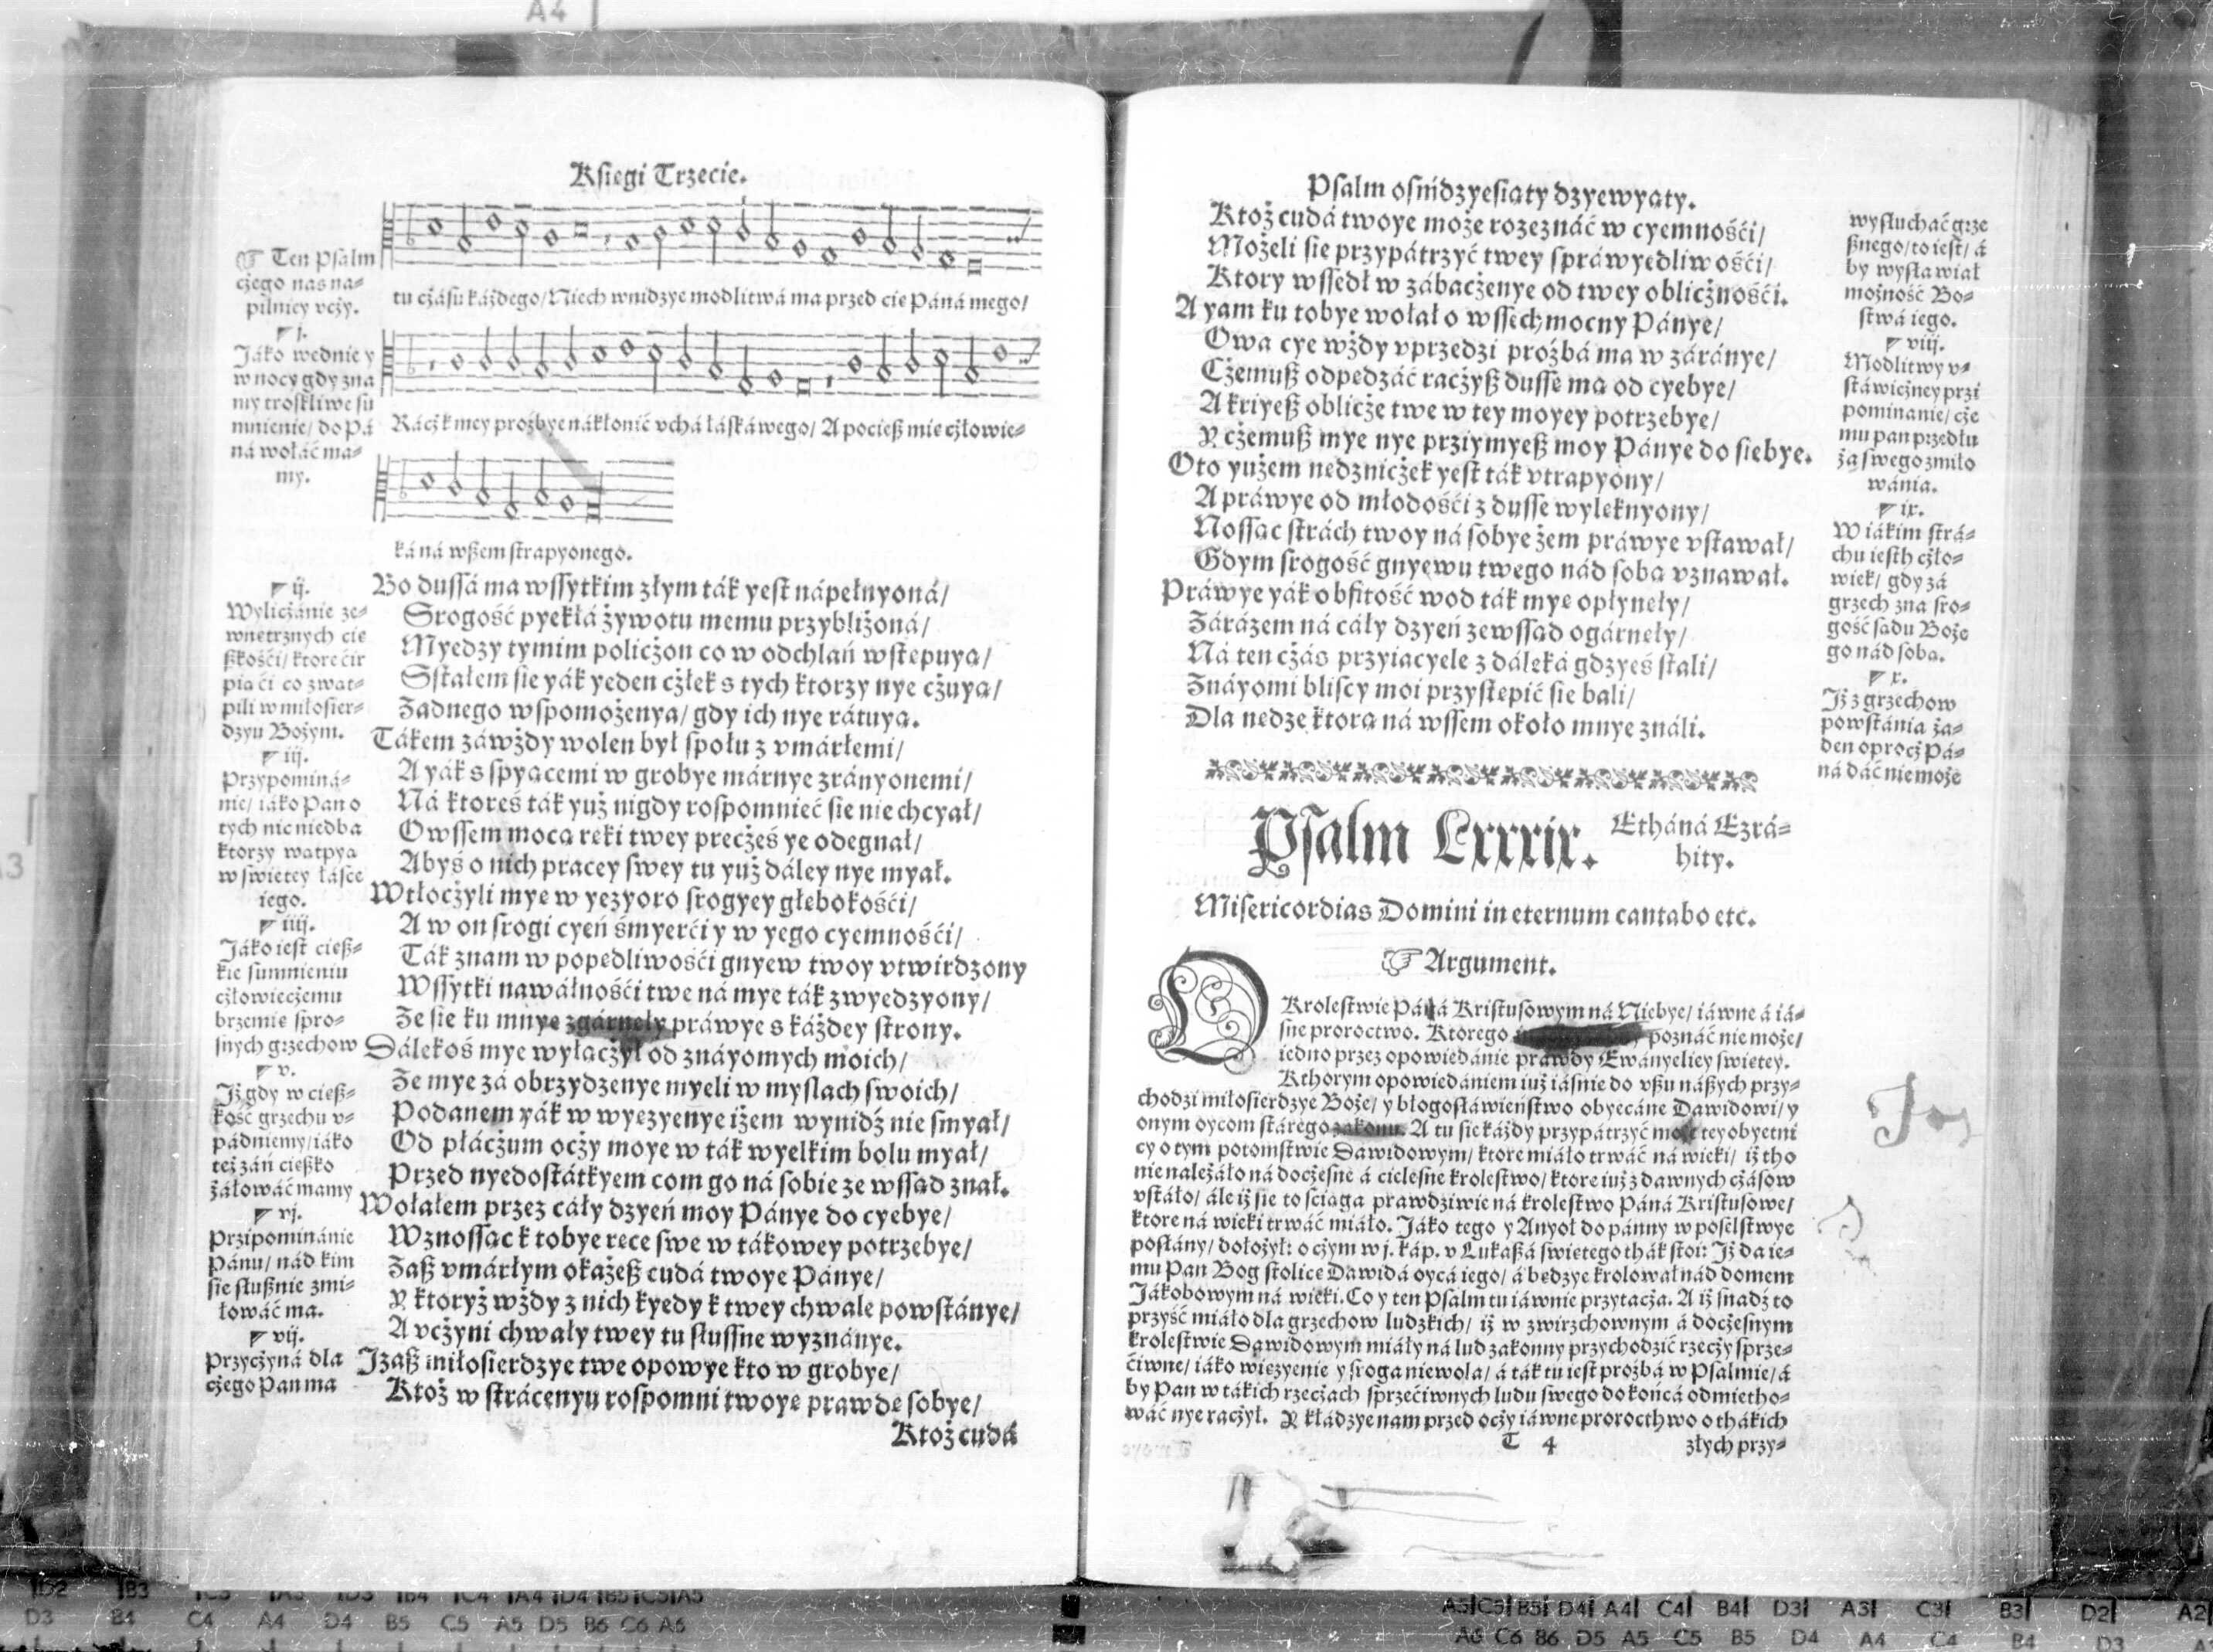 A4
Ksiegi Trzecie.
☞ Ten Psalm
cżego nas na-
pilnicy vcży.
tu cżásu káżdego/ Niech wnidzye modlitwá ma przed cie Páná mego/
j.
Jáko wednie y
w nocy gdy zna
my troskliwe su
mnienie/ do Pá
ná wołáć ma-
my.
Rácż k mey proźbye nákłonić vchá łáskáwego/ A pocieß mie cżłowie-
ká ná wßem strapyonego.
ij.
Wylicżánie ze-
wnetrznych cie
ßkośći/ ktore ćir
pia ći co zwat-
pili w miłosier-
dzyu Bożym.
iij.
Przypominá-
nie/ iáko Pan o
tych nic niedba
ktorzy watpya
w swietey łásce
iego.
iiij.
Jáko iest cieß-
kie sumnieniu
cżłowiecżemu
brzemie spro-
snych grzechow
v.
Jż gdy w cieß-
kość grzechu v-
pádniemy/ iáko
też záń cießko
żáłowáć mamy
vj.
Przipominánie
Pánu/ nád kim
sie słußnie zmi-
łowáć ma.
vij.
Przycżyná dla
cżego Pan ma
Bo dussá ma wssytkim złym ták yest nápełnyoná/
Srogość pyekłá żywotu memu przybliżoná/
Myedzy tymim policżon co w odchlań wstepuya/
Sstałem sie yák yeden cżłek s tych ktorzy nye cżuya/
Żadnego wspomożenya/ gdy ich nye rátuya.
Tákem záwżdy wolen był społu z vmárłemi/
A yák s spyacemi w grobye márnye zrányonemi/
Ná ktoreś ták yuż nigdy rospomnieć sie nie chcyał/
Owssem moca reki twey precżeś ye odegnał/
Abyś o nich pracey swey tu yuż dáley nye myał.
Wtłocżyli mye w yezyoro srogyey głebokośći/
A w on srogi cyeń śmyerći y w yego cyemnośći/
Ták znam w popedliwośći gnyew twoy vtwirdzony
Wssytki nawáłnośći twe ná mye ták zwyedzyony/
Że sie ku mnye zgárnęły práwye s káżdey strony.
Dálekoś mye wyłacżył od znáyomych moich/
Że mye zá obrzydzenye myeli w myslach swoich/
Podanem yák w wyezyenye iżem wynidź nie smyał/
Od płácżum ocży moye w ták wyelkim bolu myał/
Przed nyedostátkyem com go ná sobie ze wssad znał.
Wołałem przez cáły dzyeń moy Pánye do cyebye/
Wznossac k tobye rece swe w tákowey potrzebye/
Zaß vmárłym okażeß cudá twoye Pánye/
Y ktoryż wżdy z nich kyedy k twey chwale powstánye/
A vcżyni chwały twey tu słussne wyznánye.
Jzaß miłosierdzye twe opowye kto w grobye/
Ktoż w strácenyu rospomni twoye prawde sobye/
Ktoż cudá
Psalm osmdzyesiaty dzyewyaty.
Ktoż cudá twoye może rozeznáć w cyemnośći/
Możeli sie przypátrzyć twey spráwyedliwośći/
Ktory wssedł w zábacżenye od twey oblicżnośći.
A yam ku tobye wołał o wssechmocny Pánye/
Owa cye wżdy vprzedzi proźbá ma w záránye/
Cżemuß odpedzáć racżyß dusse ma od cyebye/
A kriyeß oblicże twe w tey moyey potrzebye/
Y cżemuß mye nye prziymyeß moy Pánye do siebye.
Oto yużem nedznicżek yest ták vtrapyony/
A práwye od młodośći z dusse wyleknyony/
Nossac strách twoy ná sobye żem práwye vstawał/
Gdym srogość gnyewu twego nád soba vznawał.
Práwye yák obfitość wod ták mye opłynely/
Zárázem ná cáły dzyeń zewssad ogárnely/
Ná ten cżás przyiacyele z dáleká gdzyeś stali/
Znáyomi bliscy moi przystepić sie bali/
Dla nedze ktora ná wssem około mnye ználi.
wysłucháć grze
ßnego/ to iest/ á
by wysławiał
możność Bo-
stwá iego.
viij.
Modlitwy v-
stáwicżney przi
pominanie/ cże
mu pan przedłu
ża swego zmiło
wánia.
ix.
W iákim strá-
chu iesth cżło-
wiek/ gdy zá
grzech zna sro-
gość sadu Boże
go nád soba.
x.
Jż z grzechow
powstánia ża-
den oprocż Pá-
ná dáć nie może
Psalm Lxxxix. Etháná Ezrá-
hity.
Misericordias Domini in eternum cantabo etc.
☞ Argument.
O Krolestwie Páná Kristusowym ná Niebye/ iáwne á iá-
sne proroctwo. Ktorego poznáć nie może/
iedno przez opowiedánie prawdy Ewányeliey swietey.
Kthorym opowiedániem iuż iásnie do vßu náßych przy-
chodzi miłosierdzye Boże/ y błogosłáwieństwo obyecáne Dawidowi/ y
onym oycom stárego zakonu. A tu sie káżdy przypátrzyć może tey obyetni
cy o tym potomstwie Dawidowym/ ktore miáło trwáć ná wieki/ iż tho
nie należáło ná docżesne á cielesne krolestwo/ ktore iuż z dawnych cżásow
vstáło/ ále iż sie to sciaga prawdziwie ná krolestwo Páná Kristusowe/
ktore ná wieki trwáć miáło. Jáko tego y Anyoł do pánny w poselstwye
posłány/ dołożył: o cżym w j. káp. v Lukaßá swietego thák stoi: Jż da ie-
mu Pan Bog stolice Dawidá oycá iego/ á bedzye krolował nád domem
Jákobowym ná wieki. Co y ten Psalm tu iáwnie przytacża. A iż snadź to
przyść miáło dla grzechow ludzkich/ iż w zwirzchownym á docżesnym
krolestwie Dawidowym miáły ná lud zakonny przychodzić rzecży sprze-
ćiwne/ iáko wiezyenie y sroga niewola/ á ták tu iest proźbá w Psalmie/ á
by Pan w tákich rzecżach sprzećiwnych ludu swego do końcá odmietho-
wáć nye racżył. Y kłádzye nam przed ocży iáwne prorocthwo o thákich
T 4
złych przy-
D2 B3 C3 A3 D3 B4 C4 A4 D4 B5 C5 A5
D3 B4 C4 A4 D4 B5 C5 A5 D5 B6 C6 A6
A5 C5 B5 D4 A4 C4 B4 D3 A3 C3 B3 D2 A2
A6 C6 B6 D5 A5 C5 B5 D4 A4 C4 B4 D3